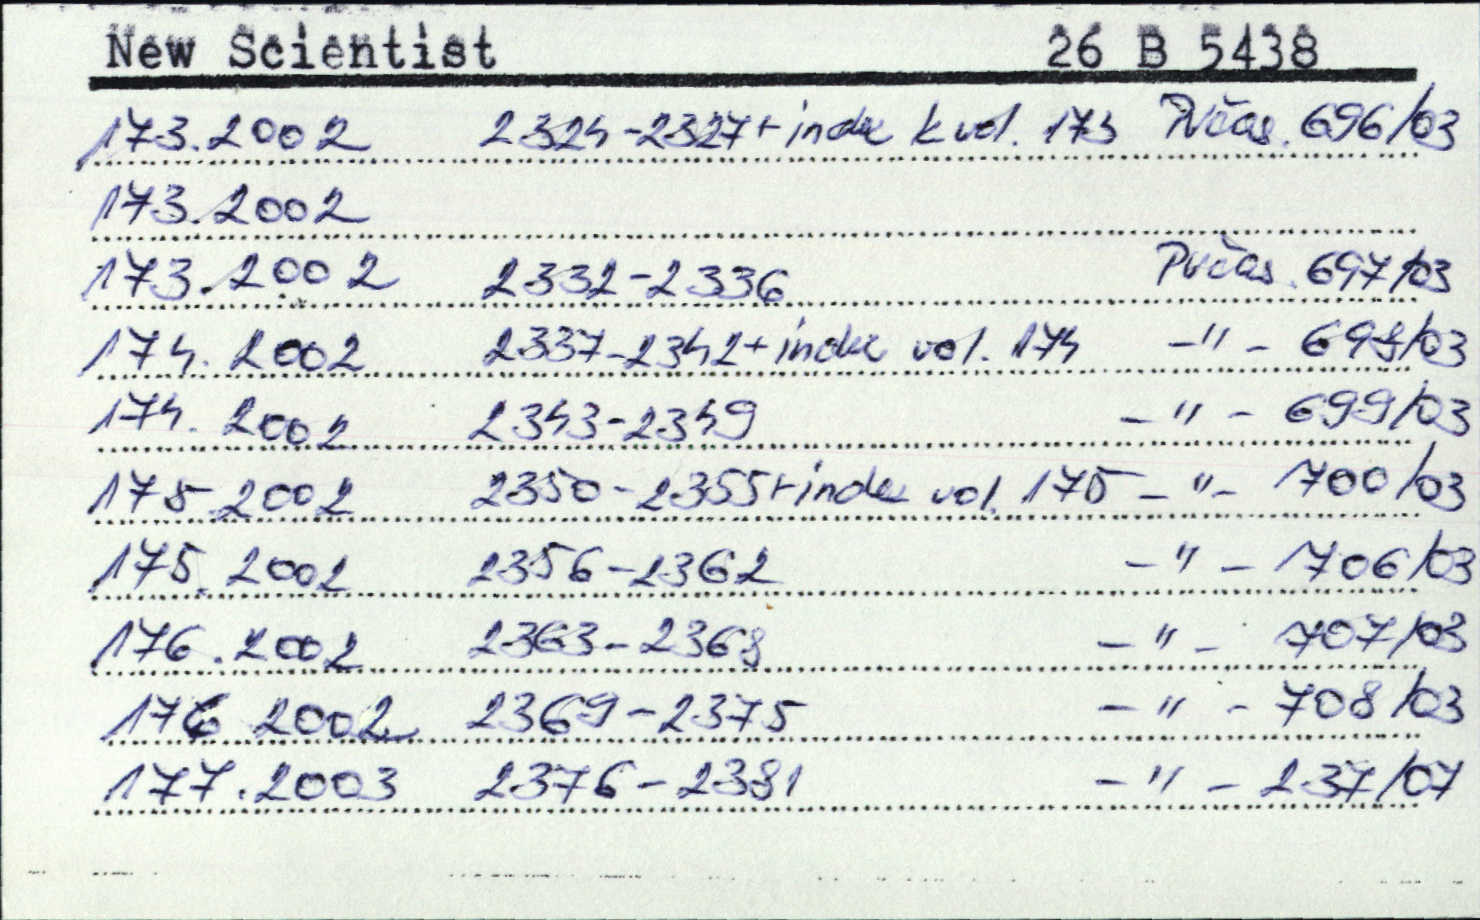 New Scientist 26 B 5438
173.2002 2324-2327+index k vol. 173 Pučas. 696/03
173.2002
173.2002 2332-2336 Pučas. 697/03
174.2002 2337-2342+index vol. 174 -"- 698/03
174.2002 2343-2349 -"- 699/03
175.2002 2350-2355+index vol. 175 -"- 700/03
175.2002 2356-2362 -"- 706/03
176.2002 2363-2368 -"- 707/03
176 2002 2369-2375 -"- 708/03
177.2003 2376-2381 -"- 237/07